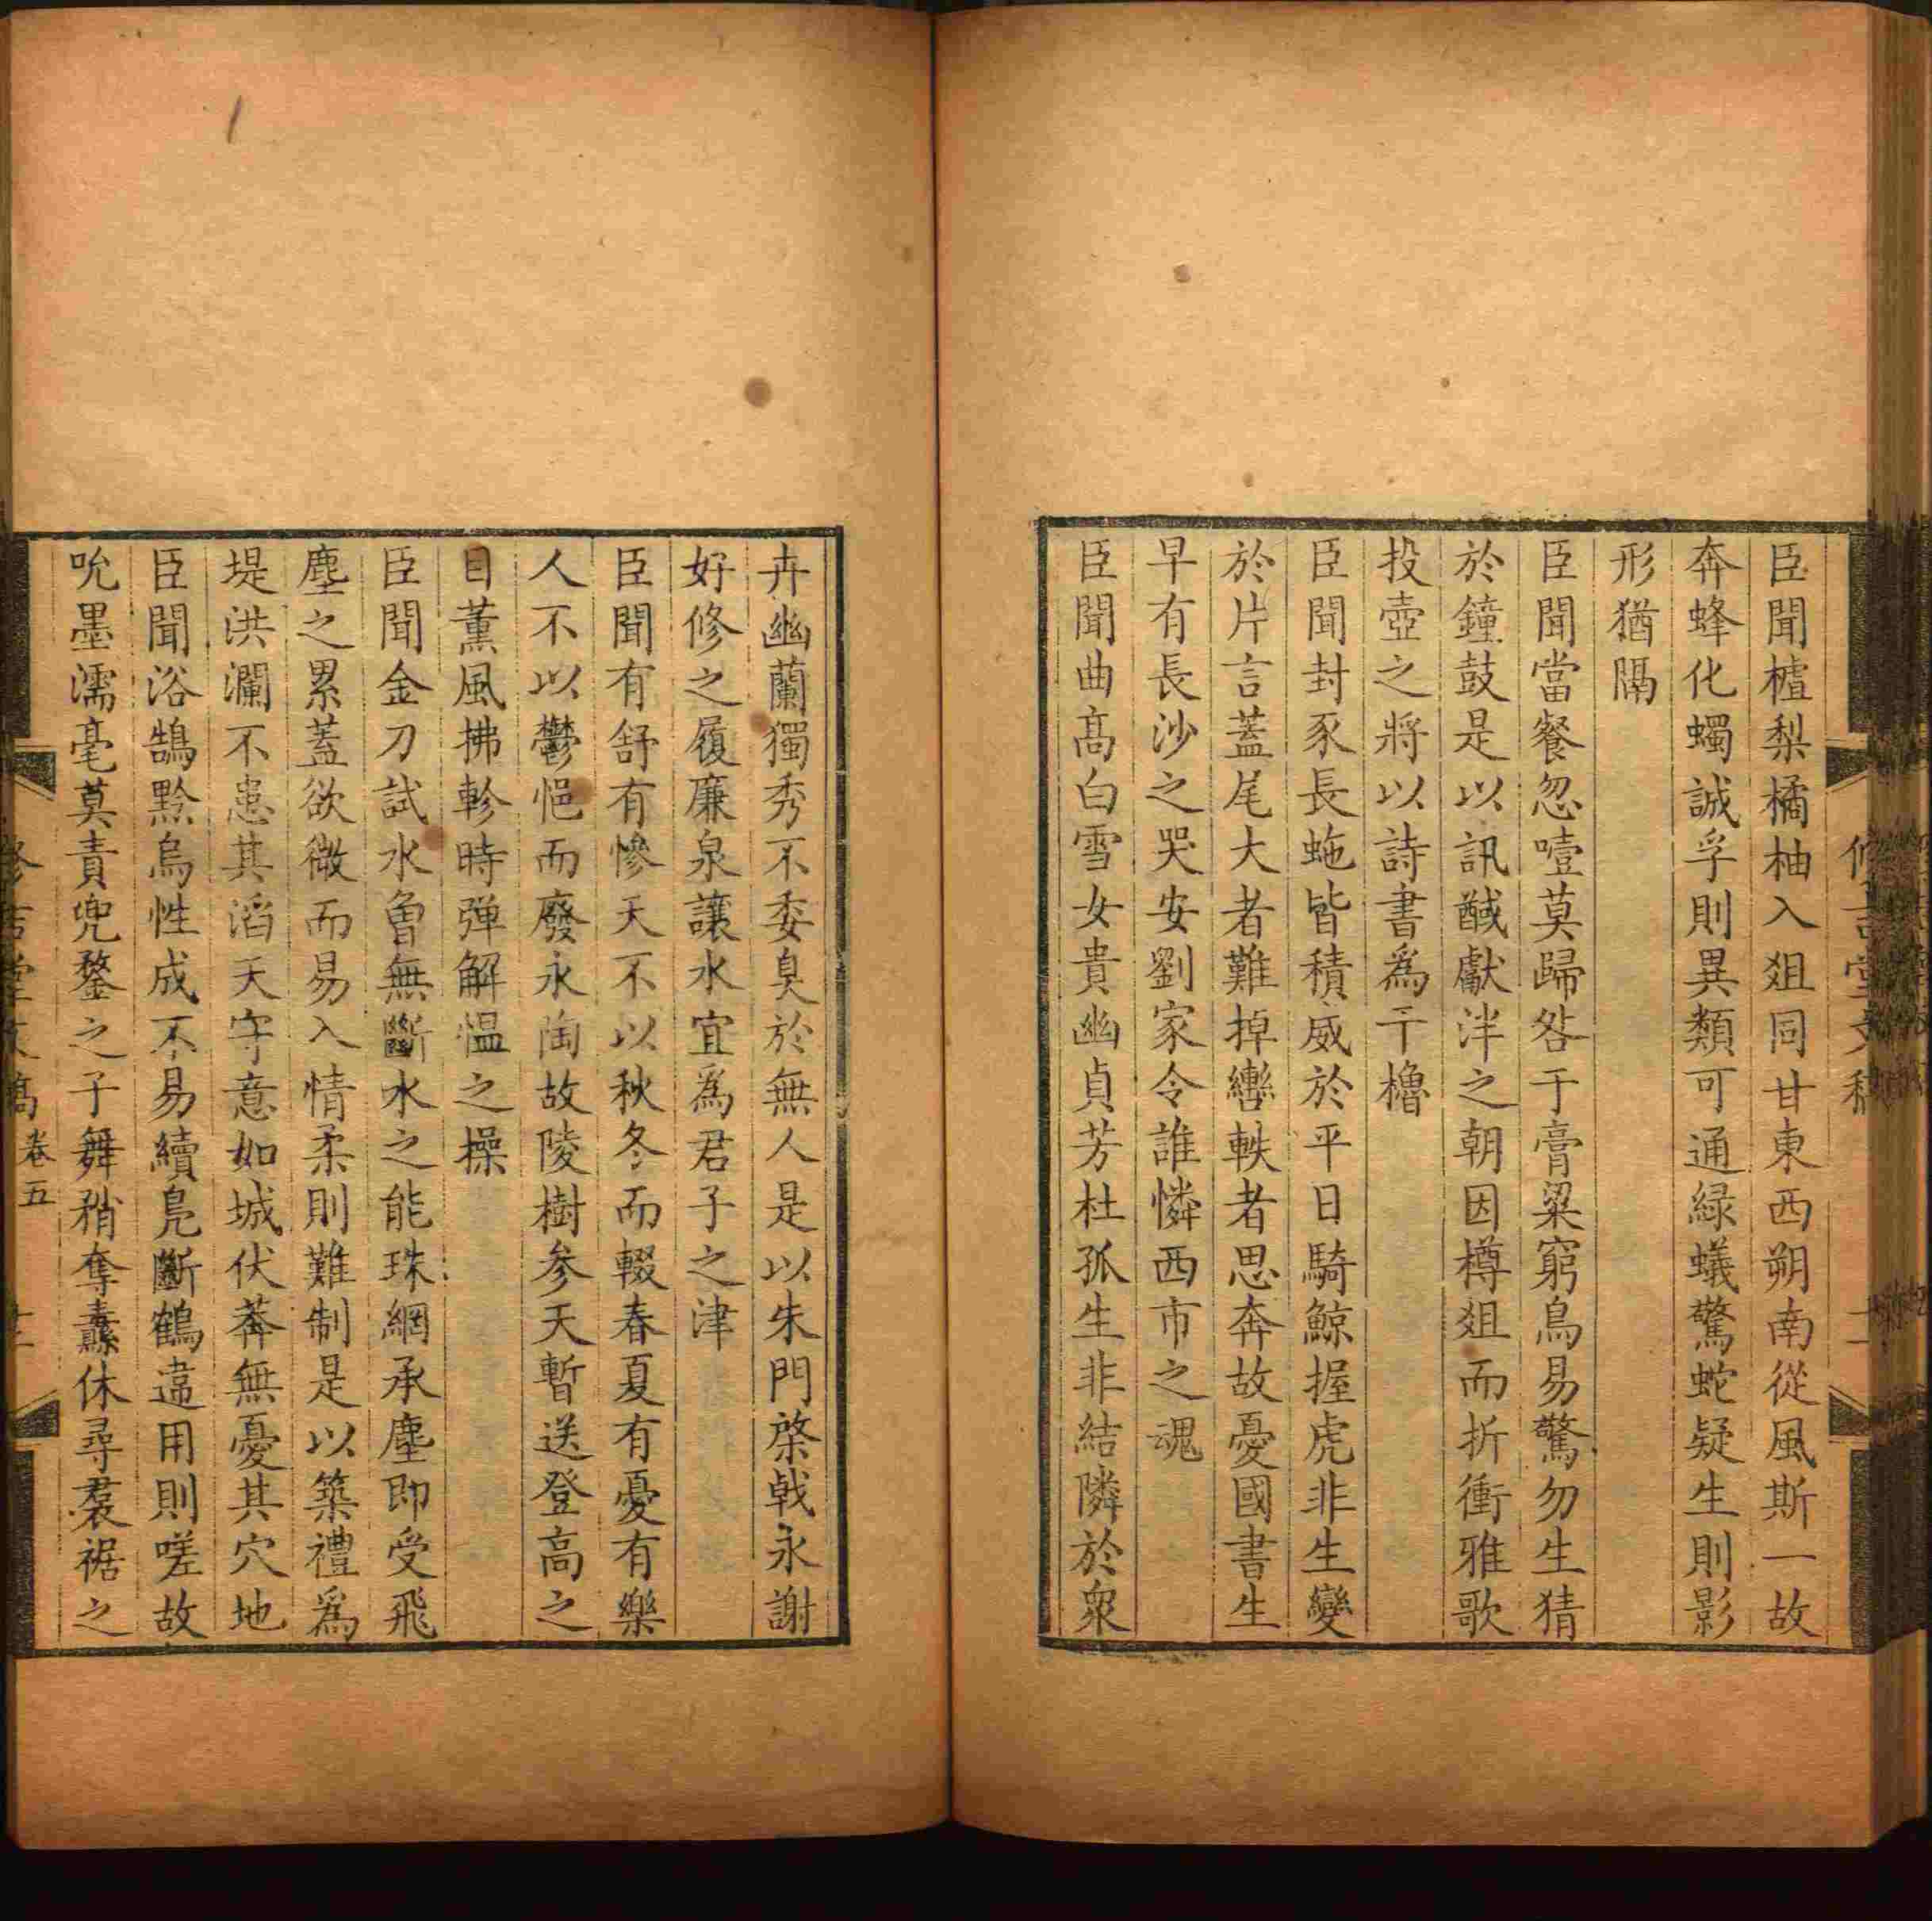 臣聞樝梨橘柚入爼同甘東西朔南從風斯一故
奔蜂化蠋誠孚則異類可通緑蟻驚蛇疑生則影
形猶隔
臣聞當餐忽噎莫歸咎于膏粱窮鳥易驚勿生猜
於鐘鼓是以訊馘獻泮之朝因樽爼而折衝雅歌
投壺之將以詩書爲干櫓
臣聞封豕長虵皆積威於平日騎鯨握虎非生變
於片言蓋尾大者難掉轡軼者思奔故憂國書生
早有長沙之哭安劉家令誰憐西市之魂
臣聞曲高白雪女貴幽貞芳杜孤生非結隣於衆
卉幽蘭獨秀不委臭於無人是以朱門棨戟永謝
好修之履廉泉讓水宜爲君子之津
臣聞有舒有慘天不以秋冬而輟春夏有憂有樂
人不以鬱悒而廢永陶故陵樹参天暫送登高之
目薰風拂軫時弹解慍之操
臣聞金刀試水魯無斷水之能珠網承塵即受飛
塵之累蓋欲微而易入情柔則難制是以築禮爲
堤洪瀾不患其滔天守意如城伏莽無憂其穴地
臣聞浴鵠黔烏性成不易續鳧斷鶴違用則嗟故
吮墨濡毫莫責兜鍪之子舞矟奪纛休尋裠裾之
修吉堂文稿 卷五